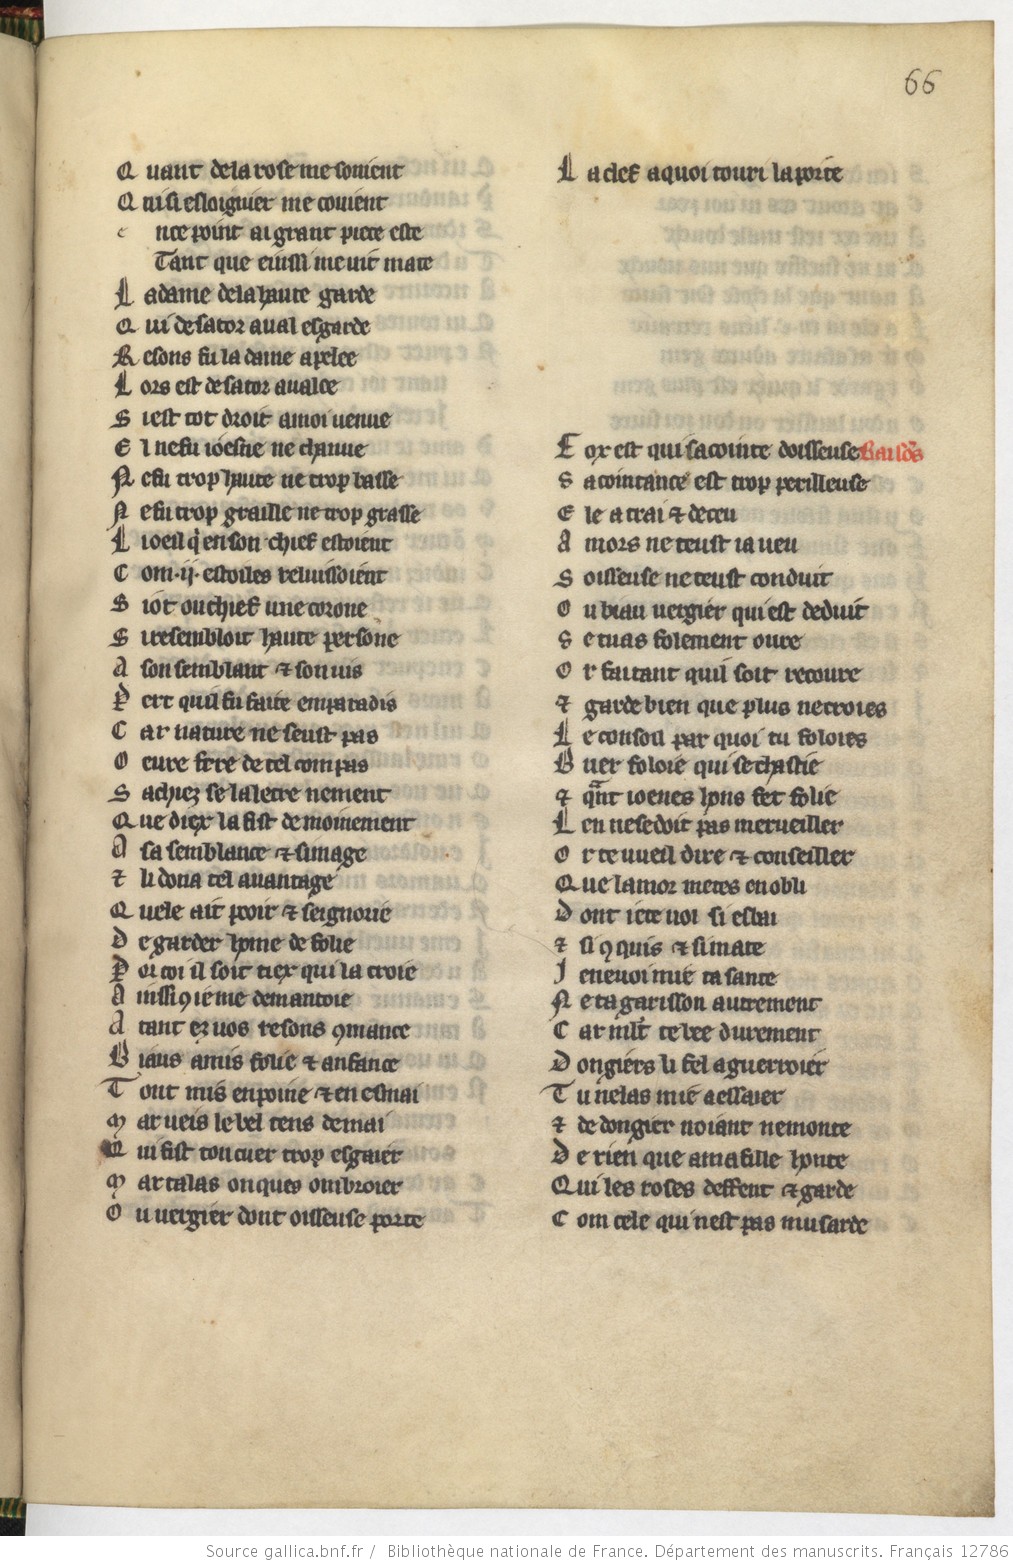 66
Q uant de la rose me souient
Q ui si esloignier me couient
e nce point ai grant piece este
Tant que einssi me uit mate
L a dame de la haute garde
Q ui de sa tor aual esgarde
R esons fu la dame apelee
L ors est de sa tor aualee
S i est tot droit a moi uenue
E l ne fu ioesne ne chanue
N e fu trop haute ne trop basse
N e fu trop graille ne trop grasse
L i oeil q̇ en son chief estoient
C om .ii. estoiles reluissoient
S i ot ou chief une corone
S i resembloit haute persone
A son semblant ⁊ son uis
P ert quil fu faite em paradis
C ar nature ne seust pas
O eure fere de tel compas
S achiez se la letre ne ment
Q ue diex la fist demoinement
A sa semblance ⁊ simage
⁊ li dona tel auantage
Q uele ait pooir ⁊ seignorie
D e garder home de folie
P or coi il soit tiex qui la croie
A inssi ꝯ ie me dementoie
A tant ez uos resons ꝯmance
B iaus amis folie ⁊ anfance
T ont mis en poine ⁊ en esmai
M ar ueis le bel tens de mai
Q ui fist ton cuer trop esgaier
M ar talas onques ombroier
O u uergier dont oisseuse porte
L a clef a quoi touri la porte
F ox est qui sacointe doisseuse
S acointance est trop perilleuse
E le a trai ⁊ deceu
A mors ne teust ia ueu
S oisseuse ne teust conduit
O u biau uergier qui est deduit
S e tu as folement oure
O r fai tant quil soit recoure
⁊ garde bien que plus ne croies
L e conseil par quoi tu foloies
B uer foloie qui se chastie
⁊ qͣnt ioenes hons fet folie
L en ne se doit pas merueiller
O r te uueil dire ⁊ conseiller
Q ue lamor metes en obli
D ont ie te uoi si esbai
⁊ si ꝯquis ⁊ si mate
J e ne uoi mie ta sante
N e ta garisson autrement
C ar mlt te bee durement
D ongiers li fel a guerroier
T u nelas mie a essaier
⁊ de dongier noiant ne monte
D e rien que a ma fille honte
Q ui les roses deffent ⁊ garde
C om cele qui nest pas musarde
Source gallica.bnf.fr / Bibliothèque nationale de France. Département des manuscrits. Français 12786